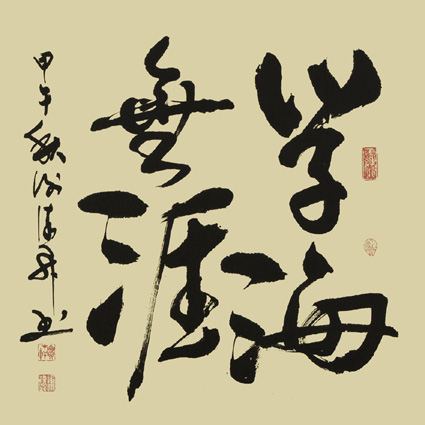 学海
無涯
甲午秋